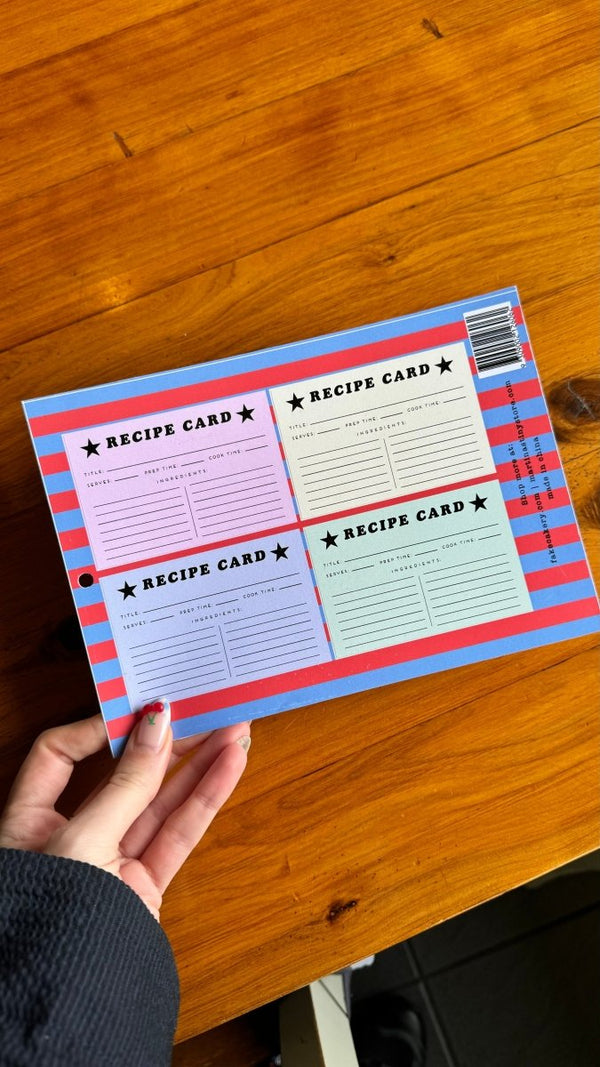 ★ RECIPE CARD ★
TITLE:
SERVES: PREP TIME: COOK TIME:
INGREDIENTS:
★ RECIPE CARD ★
TITLE:
SERVES: PREP TIME: COOK TIME:
INGREDIENTS:
★ RECIPE CARD ★
TITLE:
SERVES: PREP TIME: COOK TIME:
INGREDIENTS:
★ RECIPE CARD ★
TITLE:
SERVES: PREP TIME: COOK TIME:
INGREDIENTS:
Shop more at:
made in china